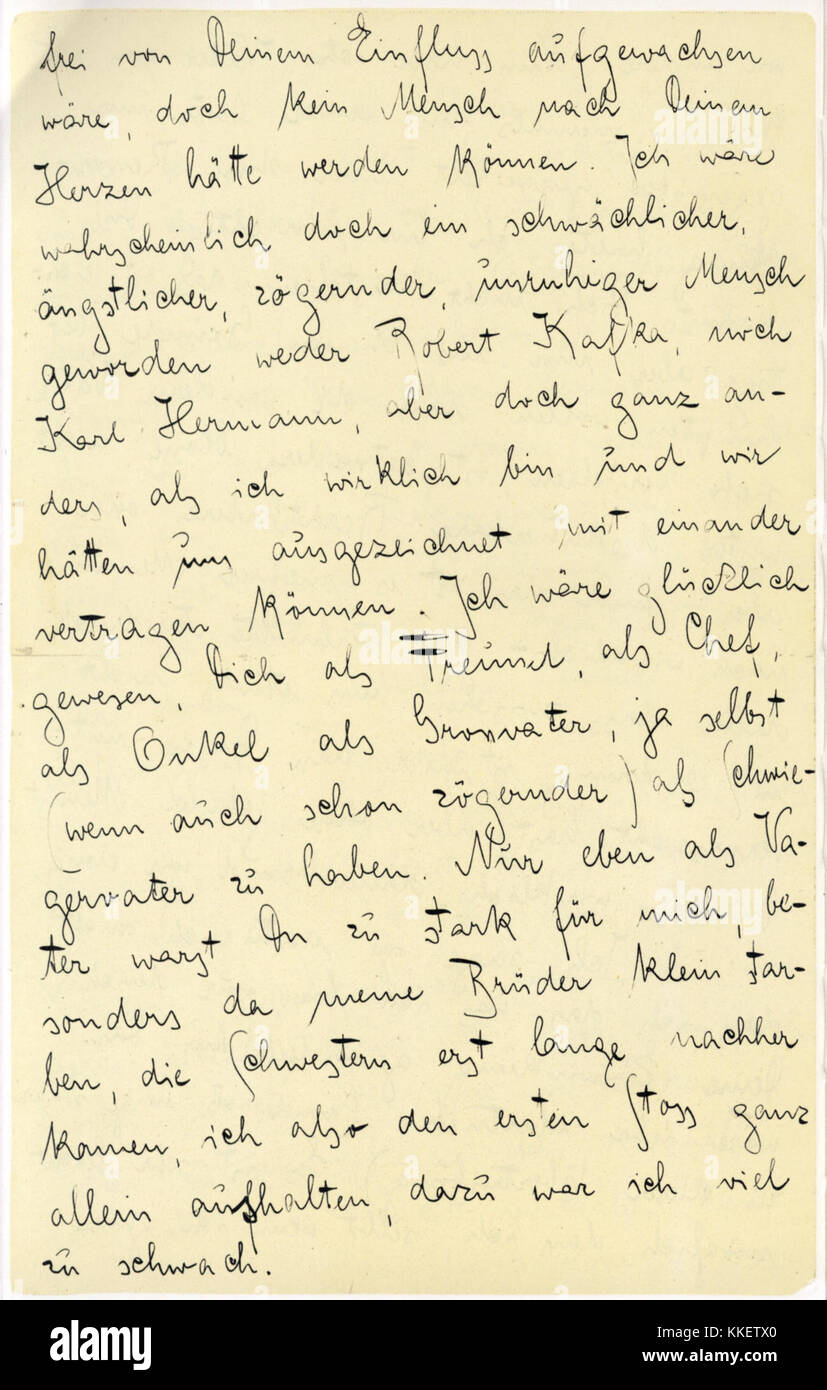 frei von Deinem Einfluss aufgewachsen
wäre, doch kein Mensch nach Deinem
Herzen hätte werden können. Ich wäre
wahrscheinlich doch ein schwächlicher,
ängstlicher, zögernder, unruhiger Mensch
geworden weder Robert Kafka, noch
Karl Hermann, aber doch ganz an-
ders, als ich wirklich bin und wir
hätten uns ausgezeichnet mit einander
vertragen können. Ich wäre glücklich
gewesen, Dich als Freund, als Chef,
als Onkel, als Grossvater, ja selbst
(wenn auch schon zögernder) als Schwie-
gervater zu haben. Nur eben als Va-
ter warst Du zu stark für mich, be-
sonders da meine Brüder klein star-
ben, die Schwestern erst lange nachher
kamen, ich also den ersten Stoss ganz
allein aushalten, dazu war ich viel
zu schwach.
alamy
Image ID: KKETX0
www.alamy.com